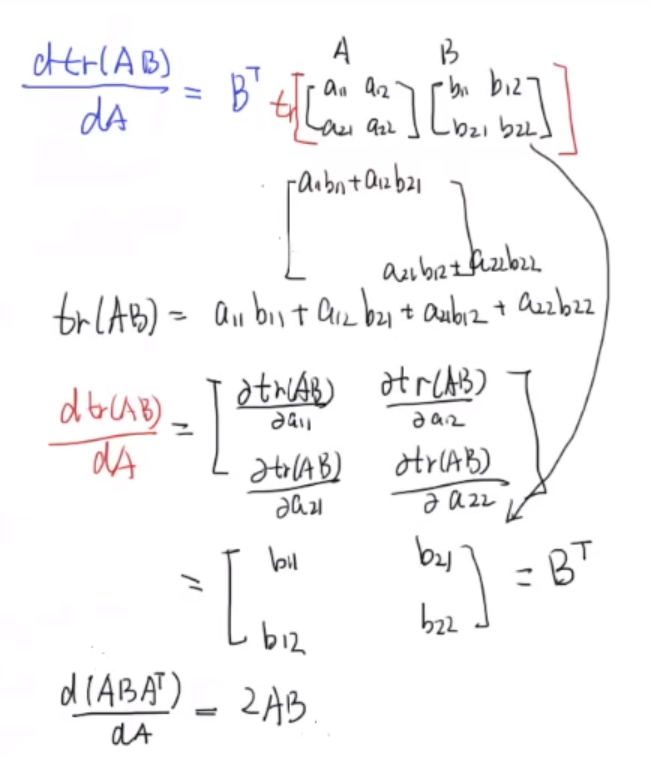 A B
dtr(AB)/dA = B^T tr[[a11 a12; a21 a22][b11 b12; b21 b22]]
[a11b11+a12b21
a21b12+a22b22]
tr(AB) = a11b11+a12b21+a21b12+a22b22
dtr(AB)/dA = [∂tr(AB)/∂a11 ∂tr(AB)/∂a12
∂tr(AB)/∂a21 ∂tr(AB)/∂a22]
= [b11 b21
b12 b22] = B^T
d(ABA^T)/dA = 2AB.